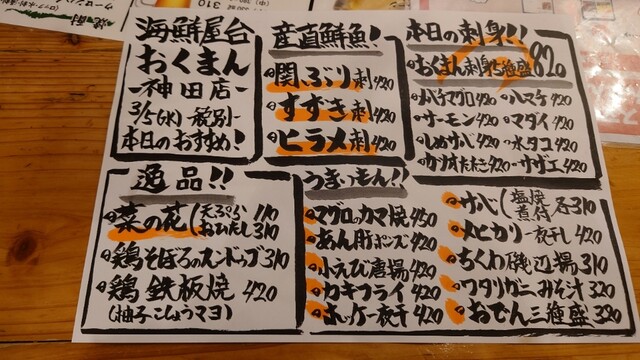 海鮮屋台
おくまん
-神田店-
3/5(火)
本日のおすすめ!
産直鮮魚!
関ぶり刺420
すずき刺420
ヒラメ刺420
本日の刺身!!
おくまん刺身5種盛820
メバチマグロ420
サーモン420
しめサバ420
カツオたたき420
ハマチ420
マダイ420
水タコ420
サザエ420
逸品!!
菜の花(天ぷら110
おひたし310
鶏そぼろのスンドゥブ310
鶏鉄板焼420
(柚子こしょうマヨ)
うまいもん!!
マグロのカマ焼450
あん肝ポン酢420
小えび唐揚420
カキフライ420
ホッケ一夜干420
サバ(塩焼
煮付 各310
メヒカリ一夜干し420
ちくわ磯辺揚310
ワタリガニみそ汁320
おでん三種盛320
310